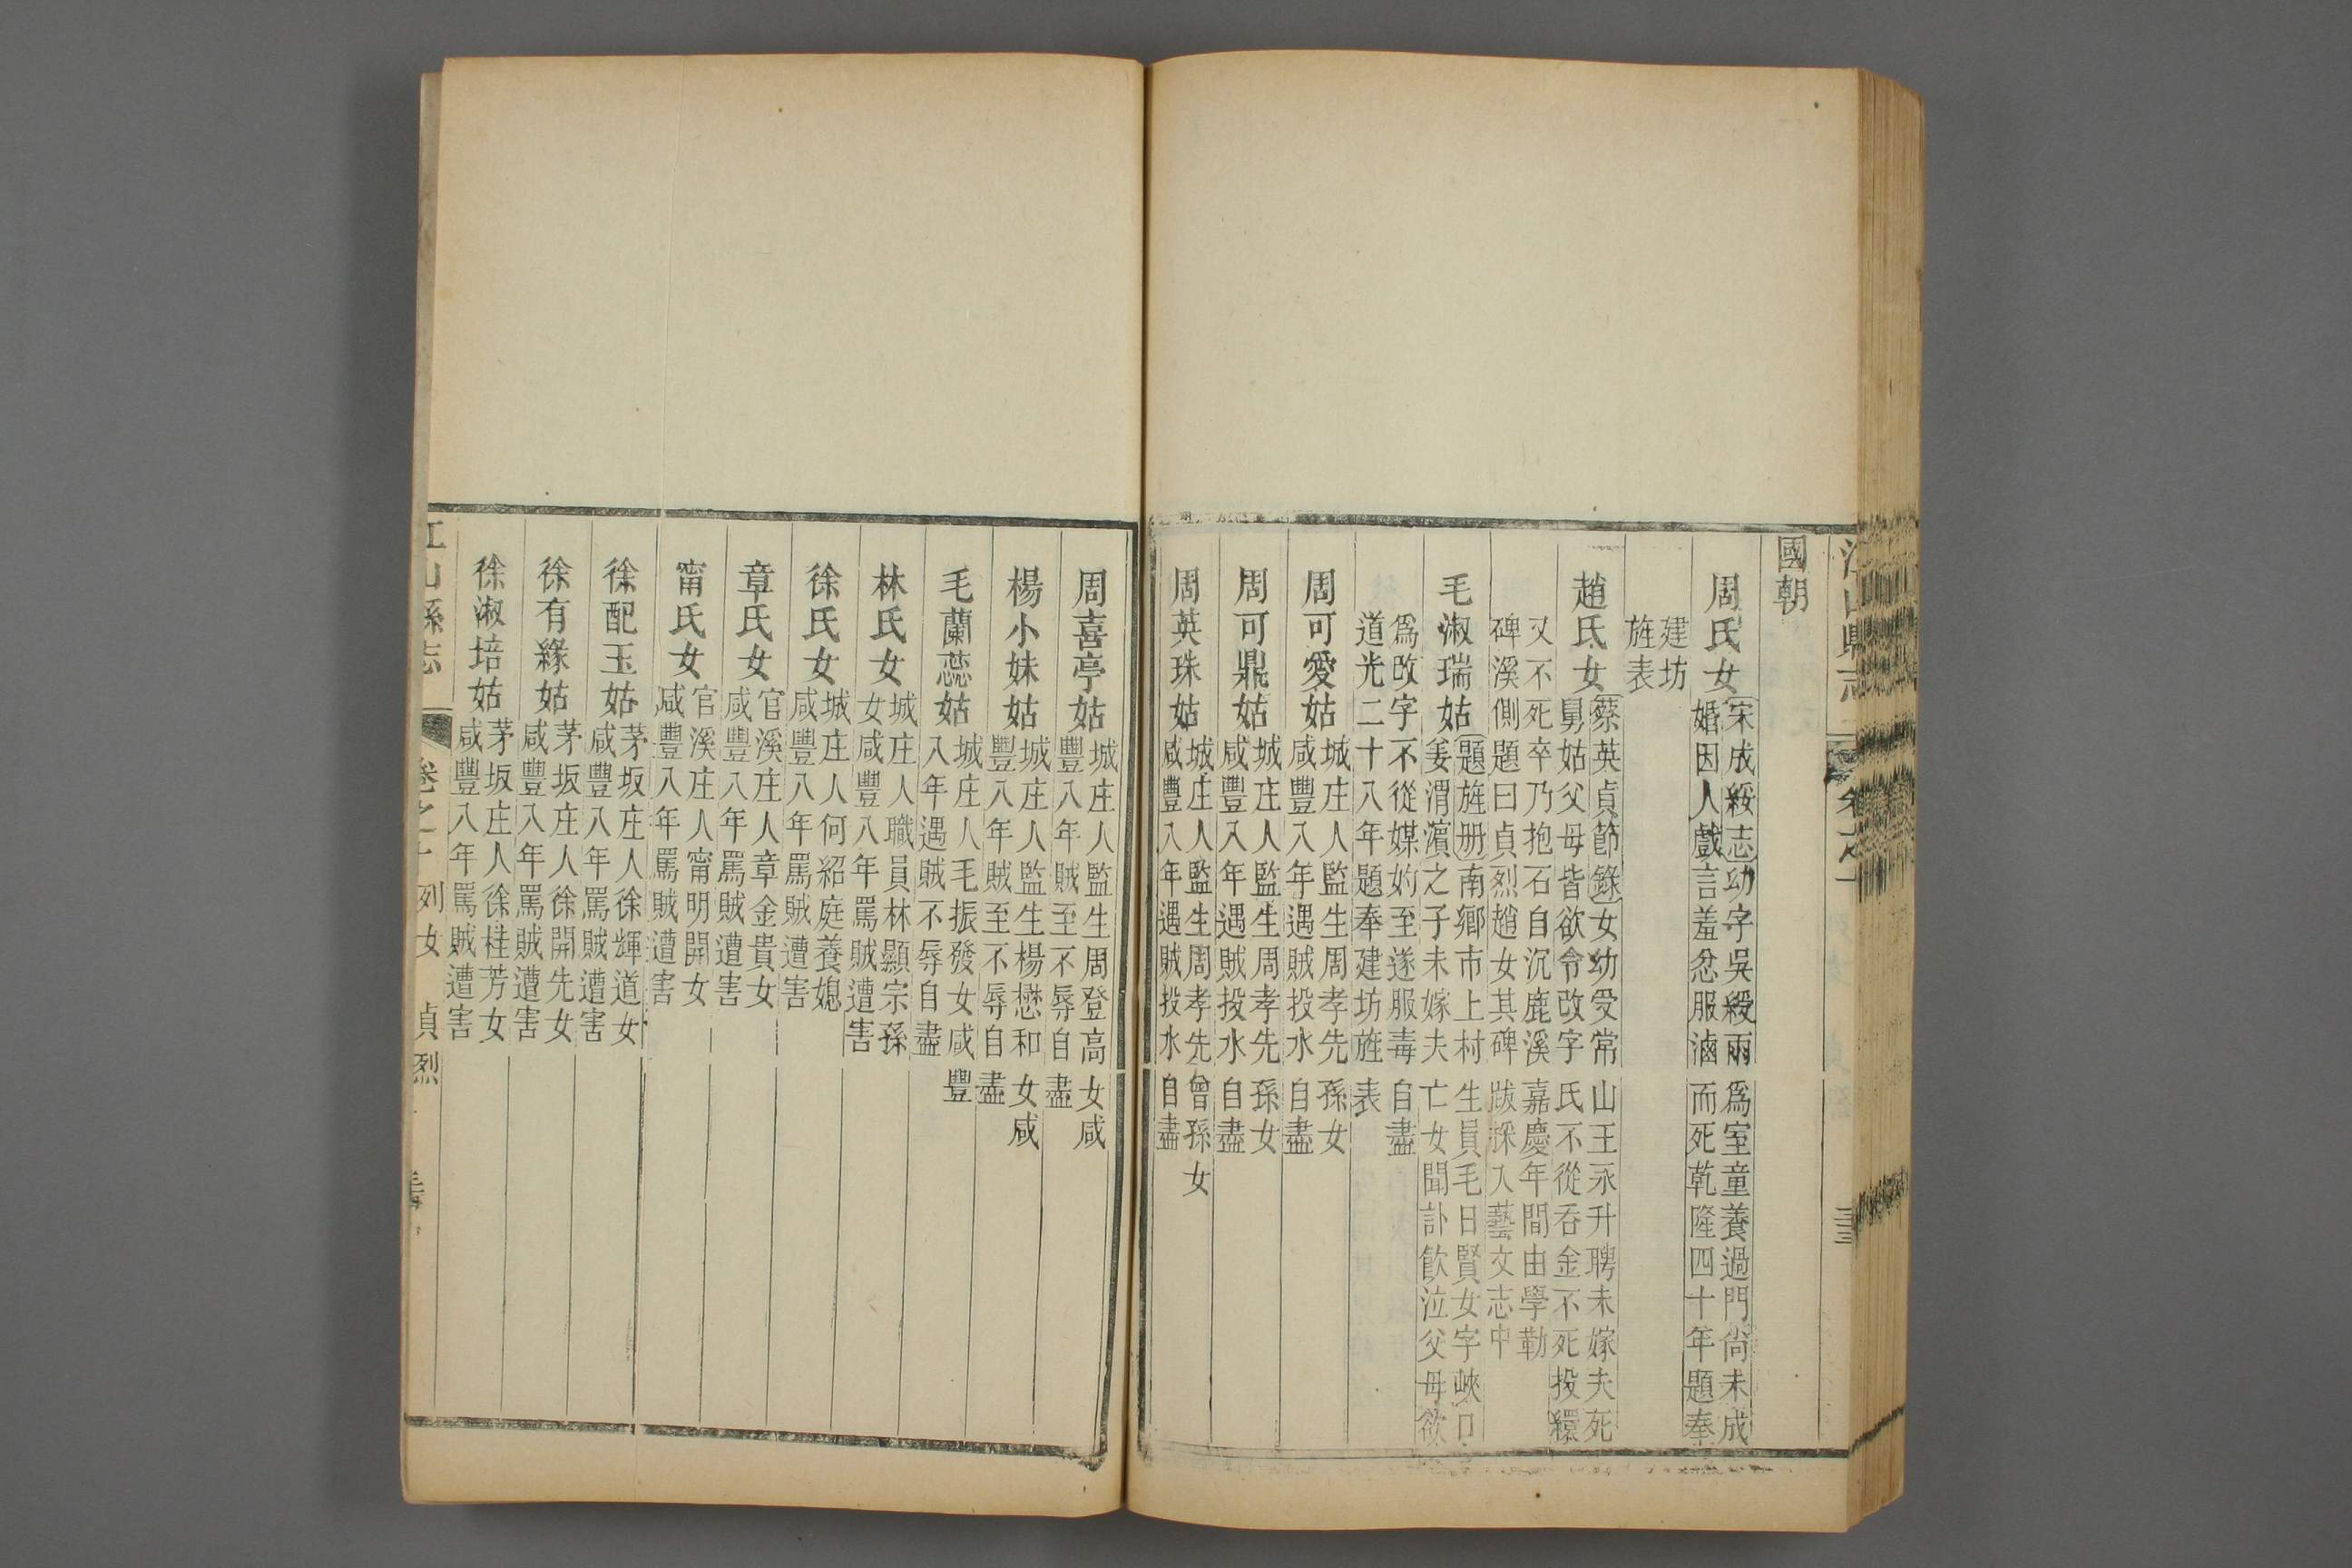 國朝
周氏女
宋成綏志幼字吳綬雨爲室童養過門尙未成
婚因人戲言羞忿服滷而死乾隆四十年題奉
建坊
旌表
趙氏女
蔡英貞節錄女幼受常山王永升聘未嫁夫死
舅姑父母皆欲令改字氏不從吞金不死投繯
又不死卒乃抱石自沉鹿溪嘉慶年間由學勒
碑溪側題曰貞烈趙女其碑跋採入藝文志中
毛淑瑞姑
題旌册南鄉市上村生員毛日賢女字峽口
姜渭濱之子未嫁夫亡女聞訃飮泣父母欲
爲改字不從媒妁至遂服毒自盡
道光二十八年題奉建坊旌表
周可愛姑
城庄人監生周孝先孫女
咸豐八年遇賊投水自盡
周可鼎姑
城庄人監生周孝先孫女
咸豐八年遇賊投水自盡
周英珠姑
城庄人監生周孝先曾孫女
咸豐八年遇賊投水自盡
周喜亭姑
城庄人監生周登高女咸
豐八年賊至不辱自盡
楊小妹姑
城庄人監生楊懋和女咸
豐八年賊至不辱自盡
毛蘭蕊姑
城庄人毛振發女咸豐
八年遇賊不辱自盡
林氏女
城庄人職員林顯宗孫
女咸豐八年罵賊遭害
徐氏女
城庄人何紹庭養媳
咸豐八年罵賊遭害
章氏女
官溪庄人章金貴女
咸豐八年罵賊遭害
甯氏女
官溪庄人甯明開女
咸豐八年罵賊遭害
徐配玉姑
茅坂庄人徐輝道女
咸豐八年罵賊遭害
徐有緣姑
茅坂庄人徐開先女
咸豐八年罵賊遭害
徐淑培姑
茅坂庄人徐桂芳女
咸豐八年罵賊遭害
江山縣志 卷之十 列女 貞烈